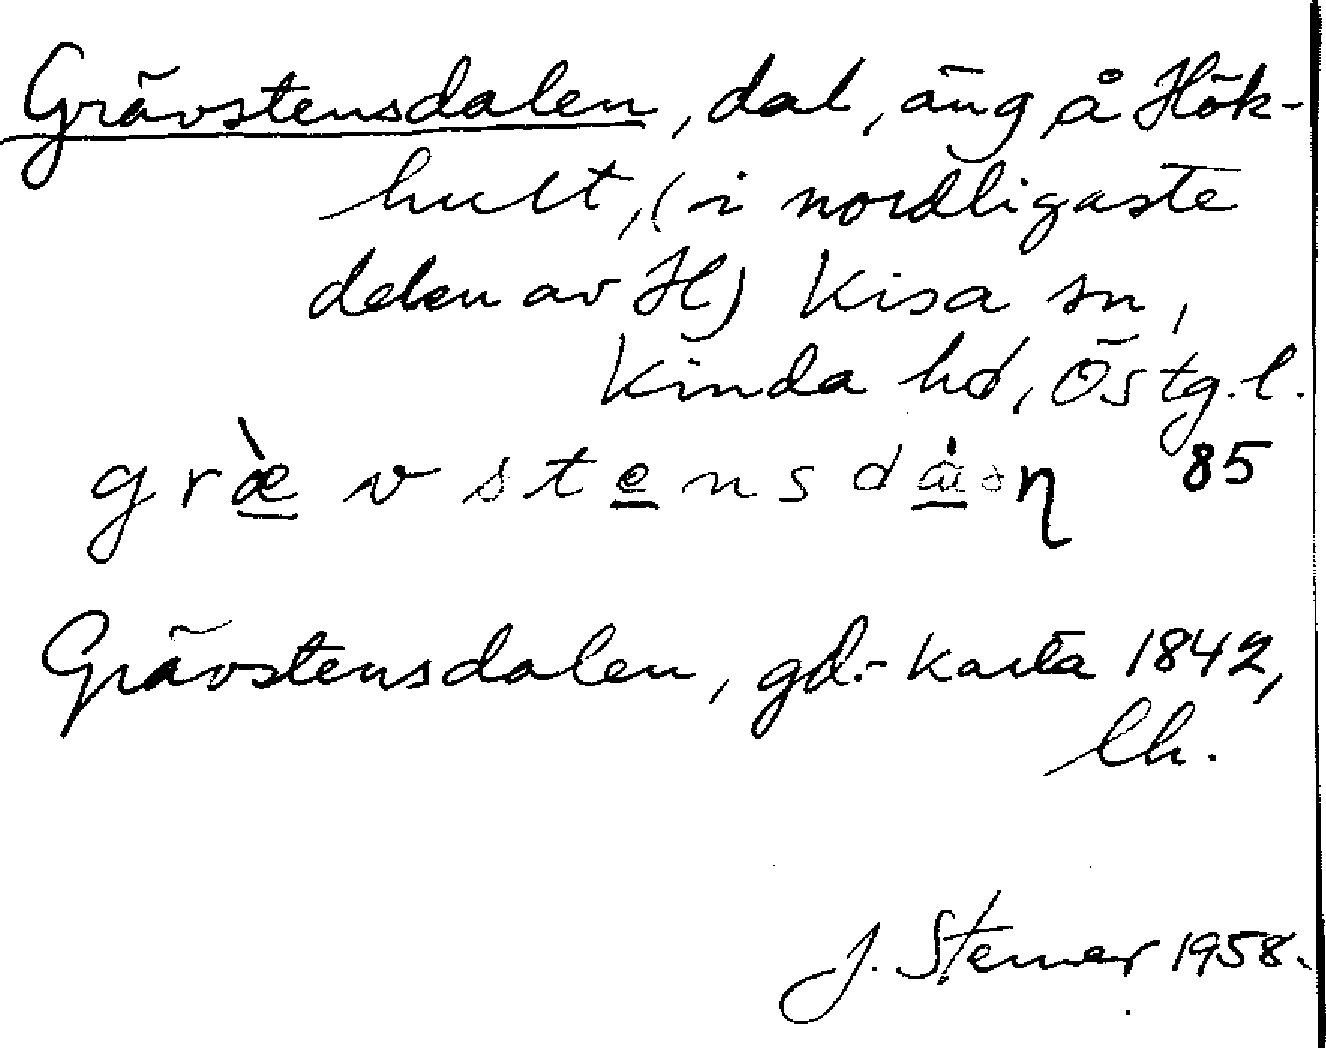 Grävstensdalen, dal, äng å Hök-
hult, (i nordligaste
delen av H) Kisa sn,
Kinda hd, Östg.l.
græ̀vstensdȧən 85
Grävstensdalen, gd.-karta 1842,
lh.
J. Stemer 1958.